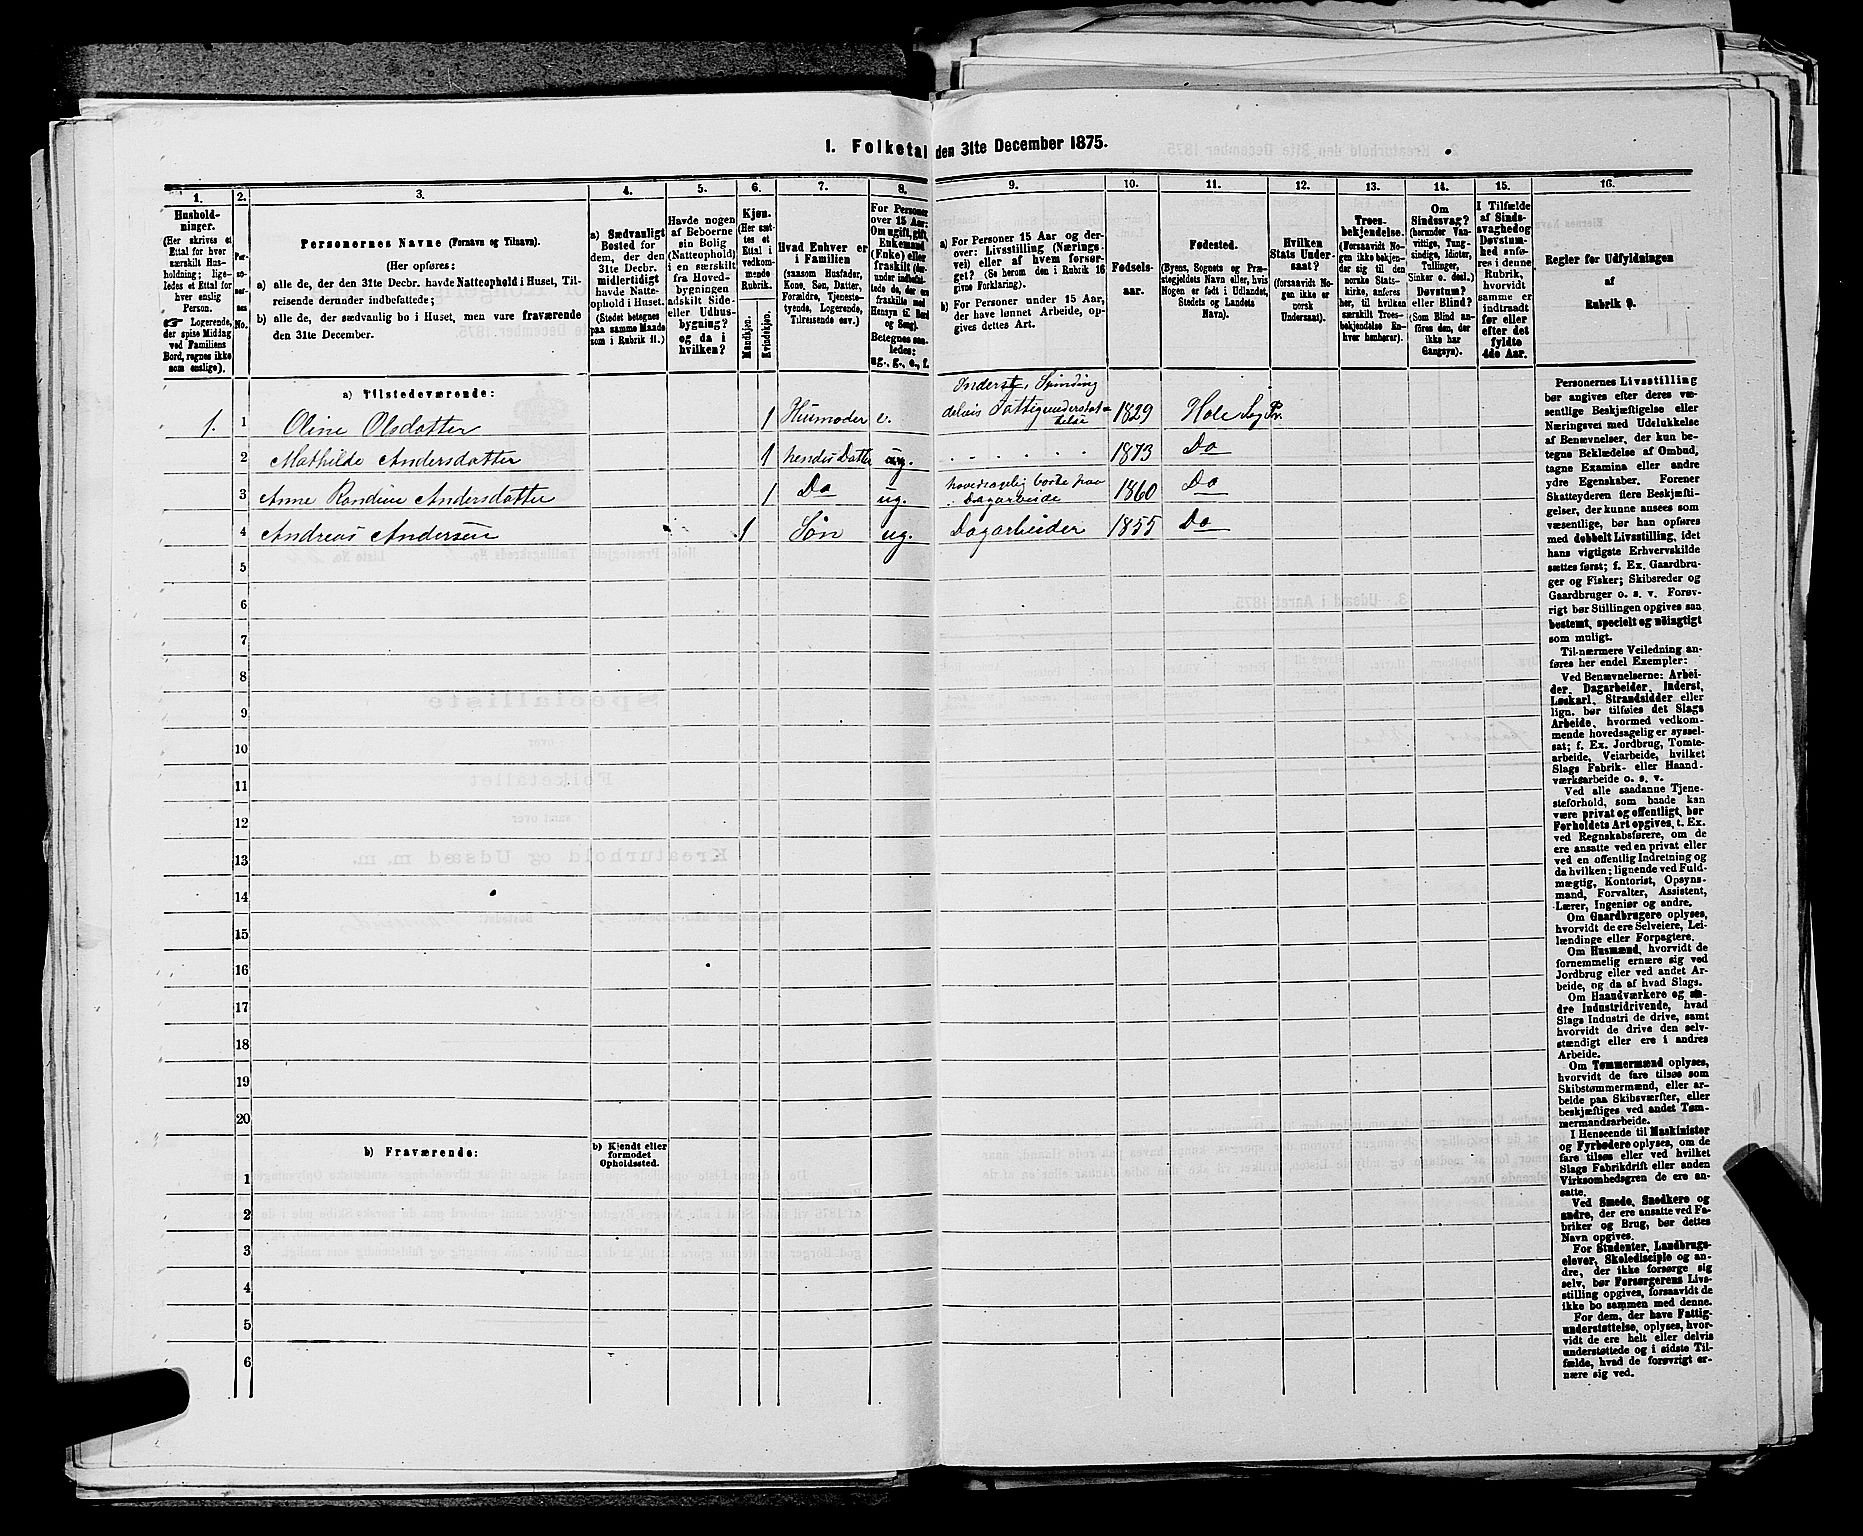 1. Folketal den 31te December 1875.
1.
2.
3.
4.
5.
6.
7.
8.
9.
10.
11.
12.
13.
14.
15.
16.
Hushold-
ninger.
(Her skrives et
Ettal for hver
særskilt Hus-
holdning; lige-
ledes et Ettal for
hver enslig
Person.
☛ Logerende,
der spise Middag
ved Familiens
Bord, regnes ikke
som enslige).
Per-
so-
ner-
nes
No.
Personernes Navne (Fornavn og Tilnavn).
(Her opføres:
a) alle de, der den 31te Decbr. havde Natteophold i Huset, Til-
reisende derunder indbefattede;
b) alle de, der sædvanlig bo i Huset, men vare fraværende
den 31te December.
a) Sædvanligt
Bosted for
dem, der den
31te Decbr.
midlertidigt
havde Natte-
ophold i Huset.
(Stedet betegnes
paa samme Maade
som i Rubrik 11.)
Havde nogen
af Beboerne
sin Bolig
(Natteophold)
i en særskilt
fra Hoved-
bygningen
adskilt Side-
eller Udhus-
bygning?
og da i
hvilken?
Kjøn.
(Her sæt-
tes et
Ettal i
vedkom-
mende
Rubrik.
Mandkjøn.
Kvindekjøn.
Hvad Enhver er
i Familien
(saasom Husfader,
Kone, Søn, Datter,
Forældre, Tjeneste-
tyende, Logerende,
Tilreisende osv.)
For Personer
over 15 Aar:
Om ugift, gift,
Enkemand
(Enke) eller
fraskilt (der-
under indbefat-
tede de, der ere
fraskilte med
Hensyn til Bord
og Seng).
Betegnes saa-
ledes:
ug., g., e., f.
a) For Personer 15 Aar og der-
over: Livsstilling (Nærings-
vei) eller af hvem forsør-
get? (Se herom den i Rubrik 16
givne Forklaring).
b) For Personer under 15 Aar,
der have lønnet Arbeide, op-
gives dettes Art.
Fødsels-
aar.
Fødested.
(Byens, Sognets og Præ-
stegjeldets Navn eller, hvis
Nogen er født i Udlandet,
Stedets og Landets
Navn).
Hvilken
Stats Under-
saat?
(forsaavidt No-
gen ikke er
norsk
Undersaat).
Troes-
bekjendelse.
(Forsaavidt No-
gen ikke bekjen-
der sig til den
norske Stats-
kirke, anføres
her, til hvilken
særskilt Troes-
bekjendelse En-
hver henhører).
Om
Sindssvag?
(herunder Van-
vittige, Tung-
sindige, Idioter,
Tullinger,
Sinker o. desl.)
Døvstum?
eller Blind?
(Som Blind an-
føres den, der
ikke har
Gangsyn).
I Tilfælde
af Sinds-
svaghed og
Døvstum-
hed anfø-
res i denne
Rubrik,
hvorvidt
samme er
indtraadt
før eller
efter det
fyldte
4de Aar.
Regler for Udfyldningen
af
Rubrik 9.
a) Tilstedeværende:
1. 1 Oline Olsdatter 1 Husmoder e. Inderst, Spinding delvis Fattigunderstøttelse 1829 Hole Sog Pr.
2 Mathilde Andersdatter 1 hendes Datter ug. 1873 Do
3 Anne Randine Andersdatter 1 Do ug. hovedsagelig borte paa Dagarbeide 1860 Do
4 Andreas Andersen 1 Søn ug. Dagarbeider 1855 Do
5
6
7
8
9
10
11
12
13
14
15
16
17
18
19
20
b) Fraværende:
b) Kjendt eller
formodet
Opholdssted.
1
2
3
4
5
6
Personernes Livsstilling
bør angives efter deres væ-
sentlige Beskjæftigelse eller
Næringsvei med Udelukkelse
af Benævnelser, der kun be-
tegne Beklædelse af Ombud,
tagne Examina eller andre
ydre Egenskaber. Forener
Skatteyderen flere Beskjæfti-
gelser, der kunne ansees som
væsentlige, bør han opføres
med dobbelt Livsstilling, idet
hans vigtigste Erhvervskilde
sættes først; f. Ex. Gaardbru-
ger og Fisker; Skibsreder og
Gaardbruger o. s. v. Forøv-
rigt bør Stillingen opgives saa
bestemt, specielt og nøiagtigt
som muligt.
Til nærmere Veiledning an-
føres her endel Exempler:
Ved Benævnelserne: Arbei-
der, Dagarbeider, Inderst,
Løskarl, Strandsidder eller
lign. bør tilføies det Slags
Arbeide, hvormed vedkom-
mende hovedsagelig er syssel-
sat; f. Ex. Jordbrug, Tomte-
arbeide, Veiarbeide, hvilket
Slags Fabrik- eller Haand-
værksarbeide o. s. v.
Ved alle saadanne Tjene-
steforhold, som baade kan
være privat og offentligt, bør
Forholdets Art opgives, t. Ex.
ved Regnskabsførere, om de
ere ansatte ved en privat eller
ved en offentlig Indretning og
da hvilken; lignende ved Fuld-
mægtig, Kontorist, Opsyns-
mand, Forvalter, Assistent,
Lærer, Ingeniør og andre.
Om Gaardbrugere oplyses,
hvorvidt de ere Selveiere, Lei-
lændinge eller Forpagtere.
Om Husmænd, hvorvidt de
fornemmelig ernære sig ved
Jordbrug eller ved andet Ar-
beide, og da af hvad Slags.
Om Haandværkere og an-
dre Industridrivende, hvad
Slags Industri de drive, samt
hvorvidt de drive den selv-
stændigt eller ere i andres
Arbeide.
Om Tømmermænd oplyses,
hvorvidt de fare tilsøs som
Skibstømmermænd, eller ar-
beide paa Skibsværfter, eller
beskjæftiges ved andet Tøm-
mermandsarbeide.
I Henseende til Maskinister
og Fyrbødere oplyses, om de
fare tilsøs eller ved hvilket
Slags Fabrikdrift eller anden
Virksomhedsgren de ere an-
satte.
Ved Smede, Snedkere og
andre, der ere ansatte ved Fa-
briker og Brug, bør dettes
Navn opgives.
For Studenter, Landbrugs-
elever, Skoledisciple og an-
dre, der ikke forsørge sig
selv, bør Forsørgerens Livs-
stilling opgives, forsaavidt de
ikke bo sammen med denne.
For dem, der have Fattig-
understøttelse, oplyses, hvor-
vidt de ere helt eller delvis
understøttede og i sidste Til-
fælde, hvad de forøvrigt er-
nære sig ved.